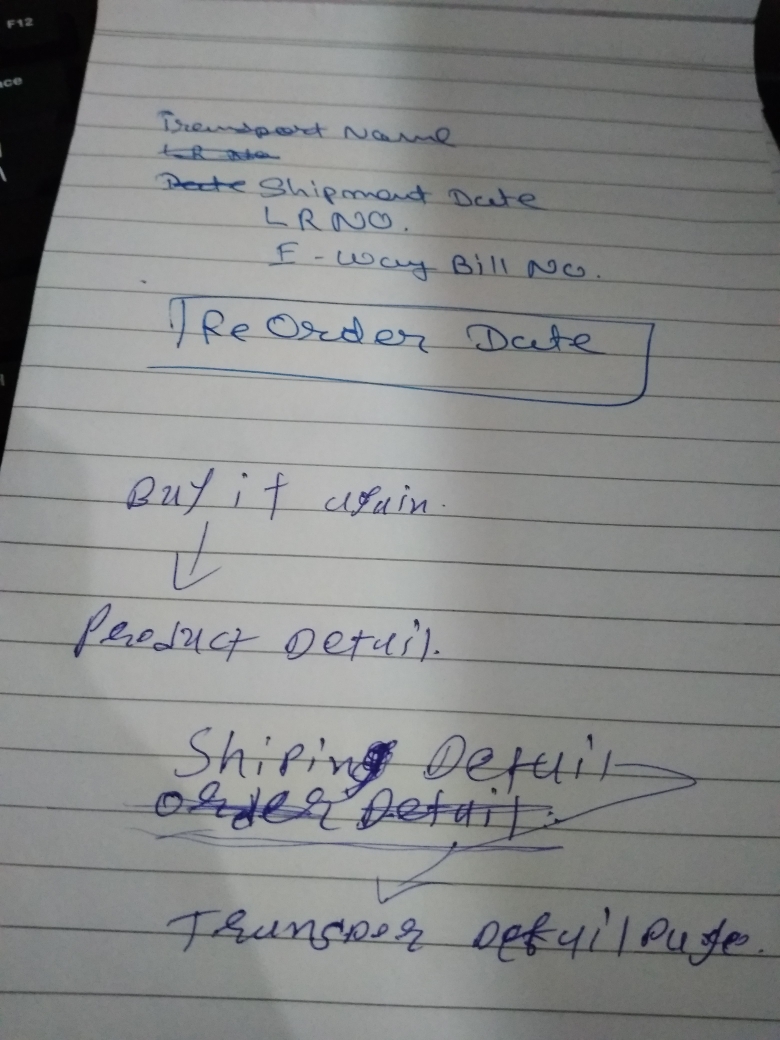 F12
Transport Name
LR No
Date Shipment Date
LR NO.
E-way Bill No.
ReOrder Date
Buy it again.
Product Detail.
Shiping Detail
Order Detail.
Transper Detail Page.